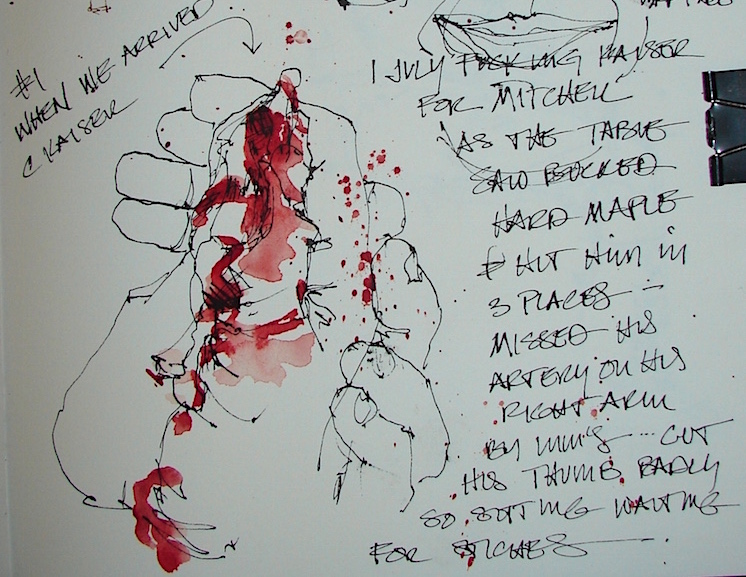 #1
WHEN WE ARRIVED
C KAISER
1 JULY FUCKING KAISER
FOR MITCHELL
AS THE TABLE
SAW BUCKED
HARD MAPLE
& HIT HIM IN
3 PLACES –
MISSED HIS
ARTERY ON HIS
RIGHT ARM
BY MM'S --- CUT
HIS THUMB BADLY
SO SITTING WAITING
FOR STICHES